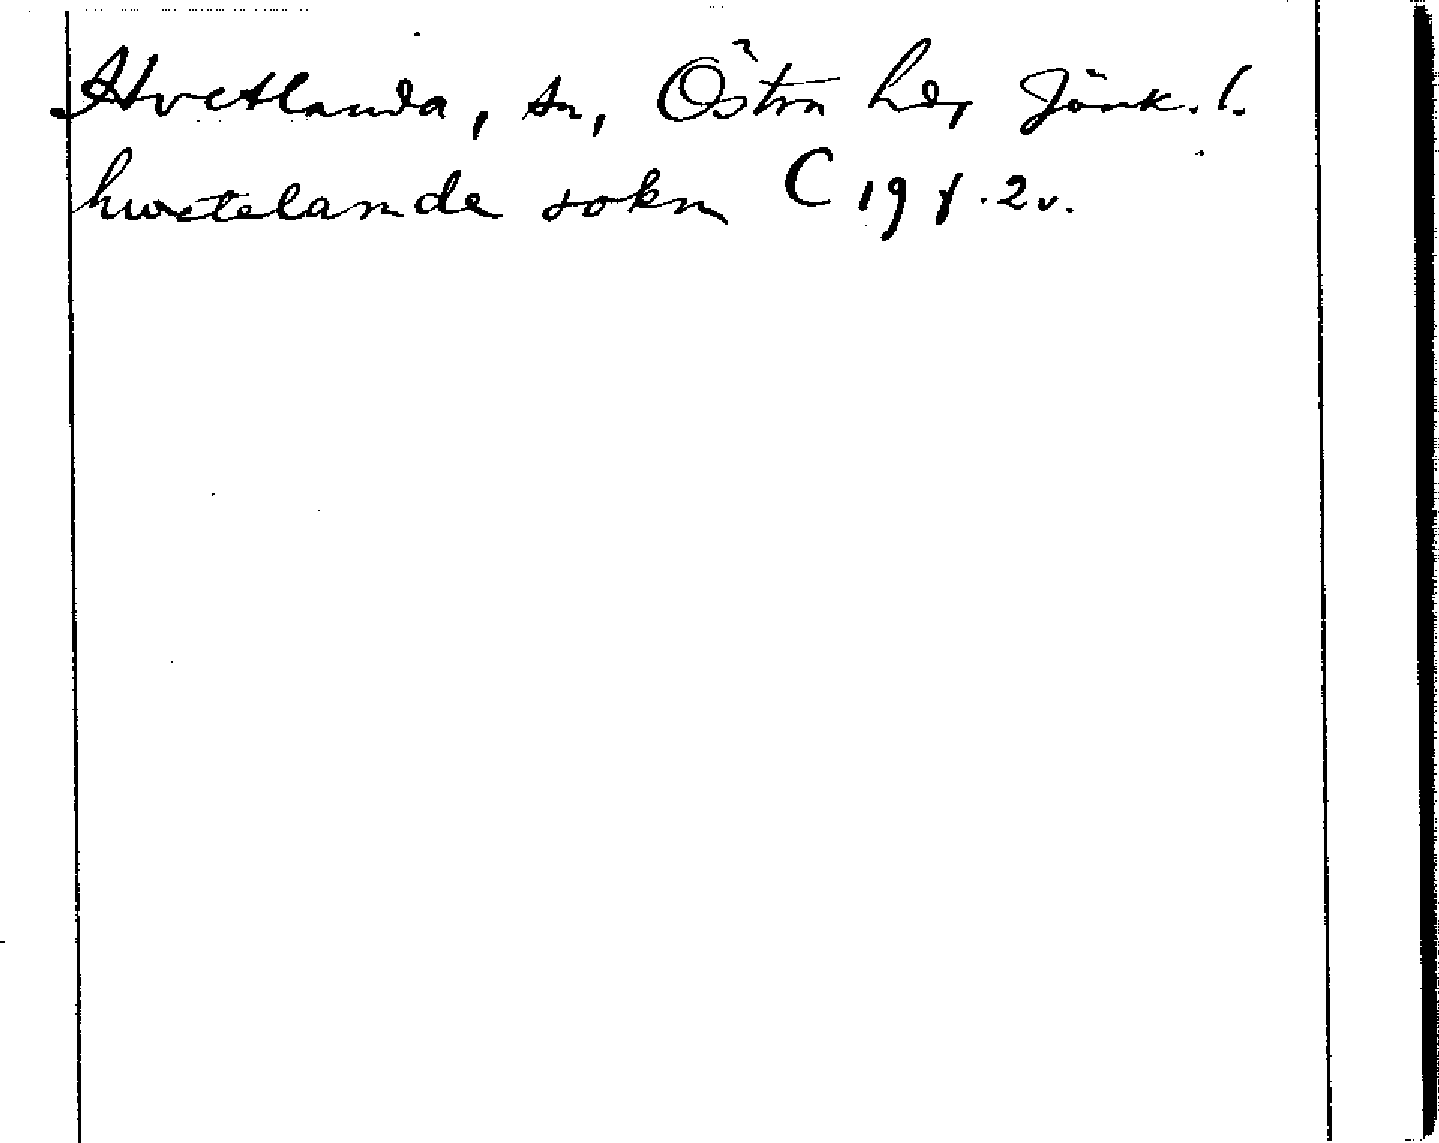 Hvetlanda, sn, Östra hd, Jönk. l.
hwetelande sokn C 19 f. 2v.